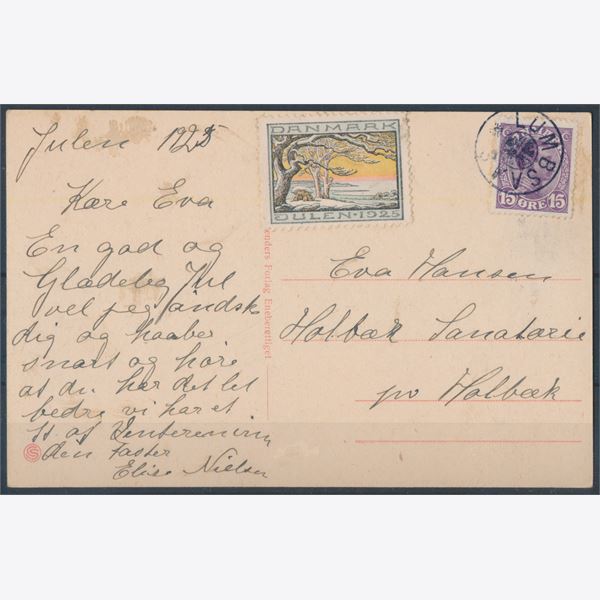 Julen 1925
Kære Eva
En god og
Glædelig Jul
vel jeg øndsk
dig og haaber
snart og høre
at du har det let
bedre vi har et
af
din Faster
Elise Nielsen
DANMARK
JULEN · 1925
LUMBSA
15 ØRE 15
enders Forlag Eneberettiget
Eva Hansen
Holbæk Sanatorie
pr Holbæk
S